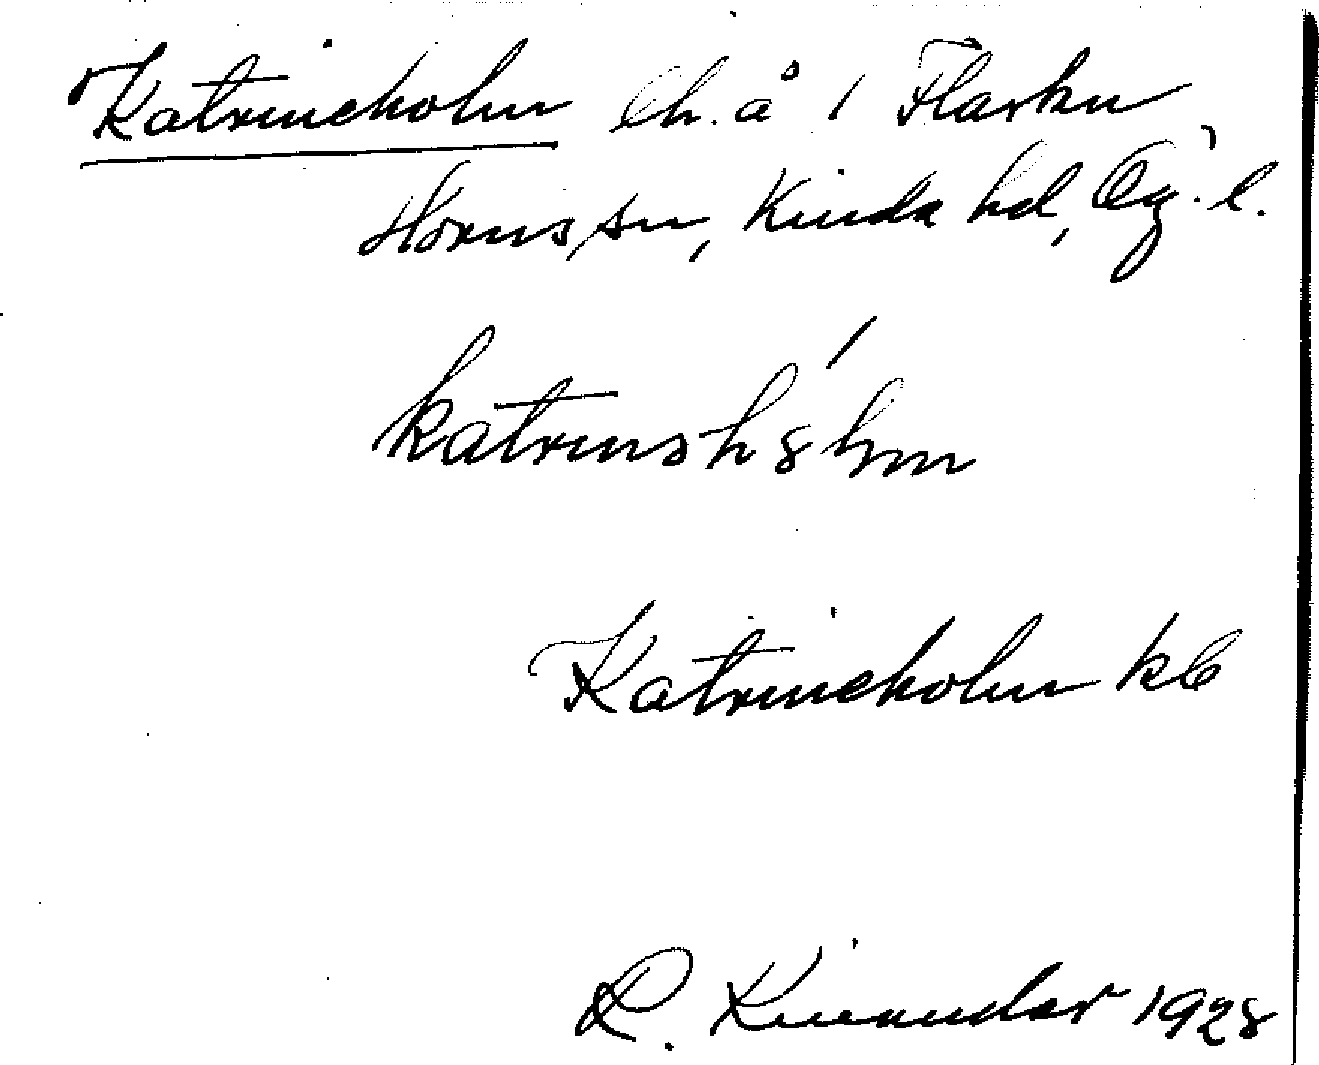 Katrineholm lh. å 1 Flarken
Horns sn, Kinda hd, Ög. l.
katrinshȣ́lm
Katrineholm kb
R. Kinander 1928